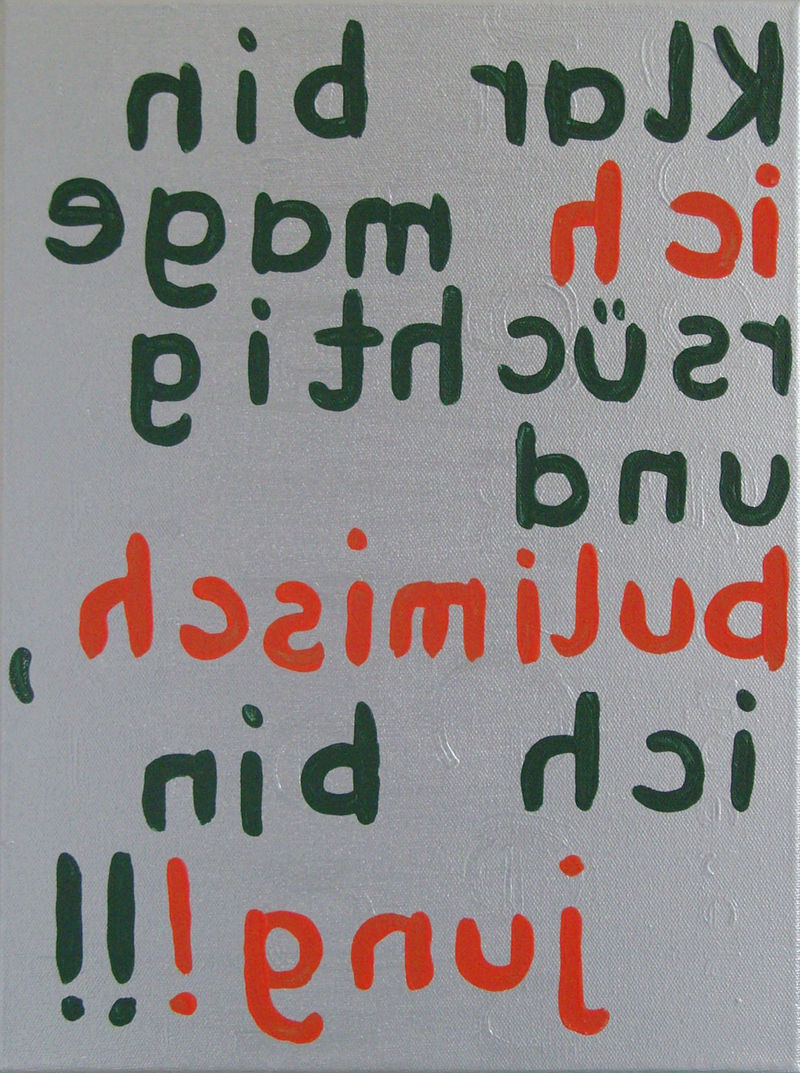 Klar bin
ich mage
rsüchtig
und
bulimisch,
ich bin
jung!!!